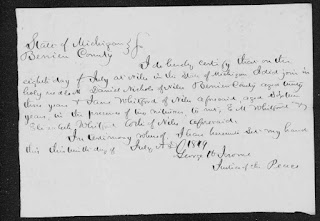 State of Michigan } ss
Berrien County
I do hereby certify that on the
eighth day of July at Niles in the State of Michigan I did join in
holy wedlock Daniel Nichols of Niles Berrien County aged twenty
three years & Jane Whitford of Niles aforesaid, aged
years, in the presence of two witnesses to wit, E. M. Whitford and
Elizabeth Whitford both of Niles aforesaid.
In testimony whereof I have hereunto set my hand
this day of July A.D. 1849
George W
Justice of the Peace